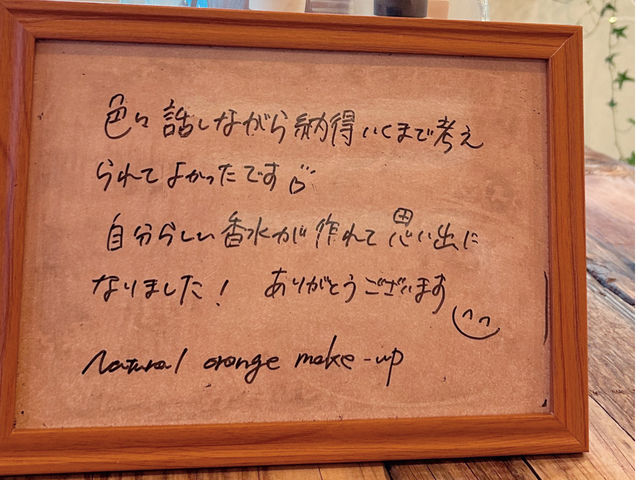 色々話しながら納得いくまで考え
られてよかったです
自分らしい香水が作れて思い出に
なりました! ありがとうございます
Natural orange make-up